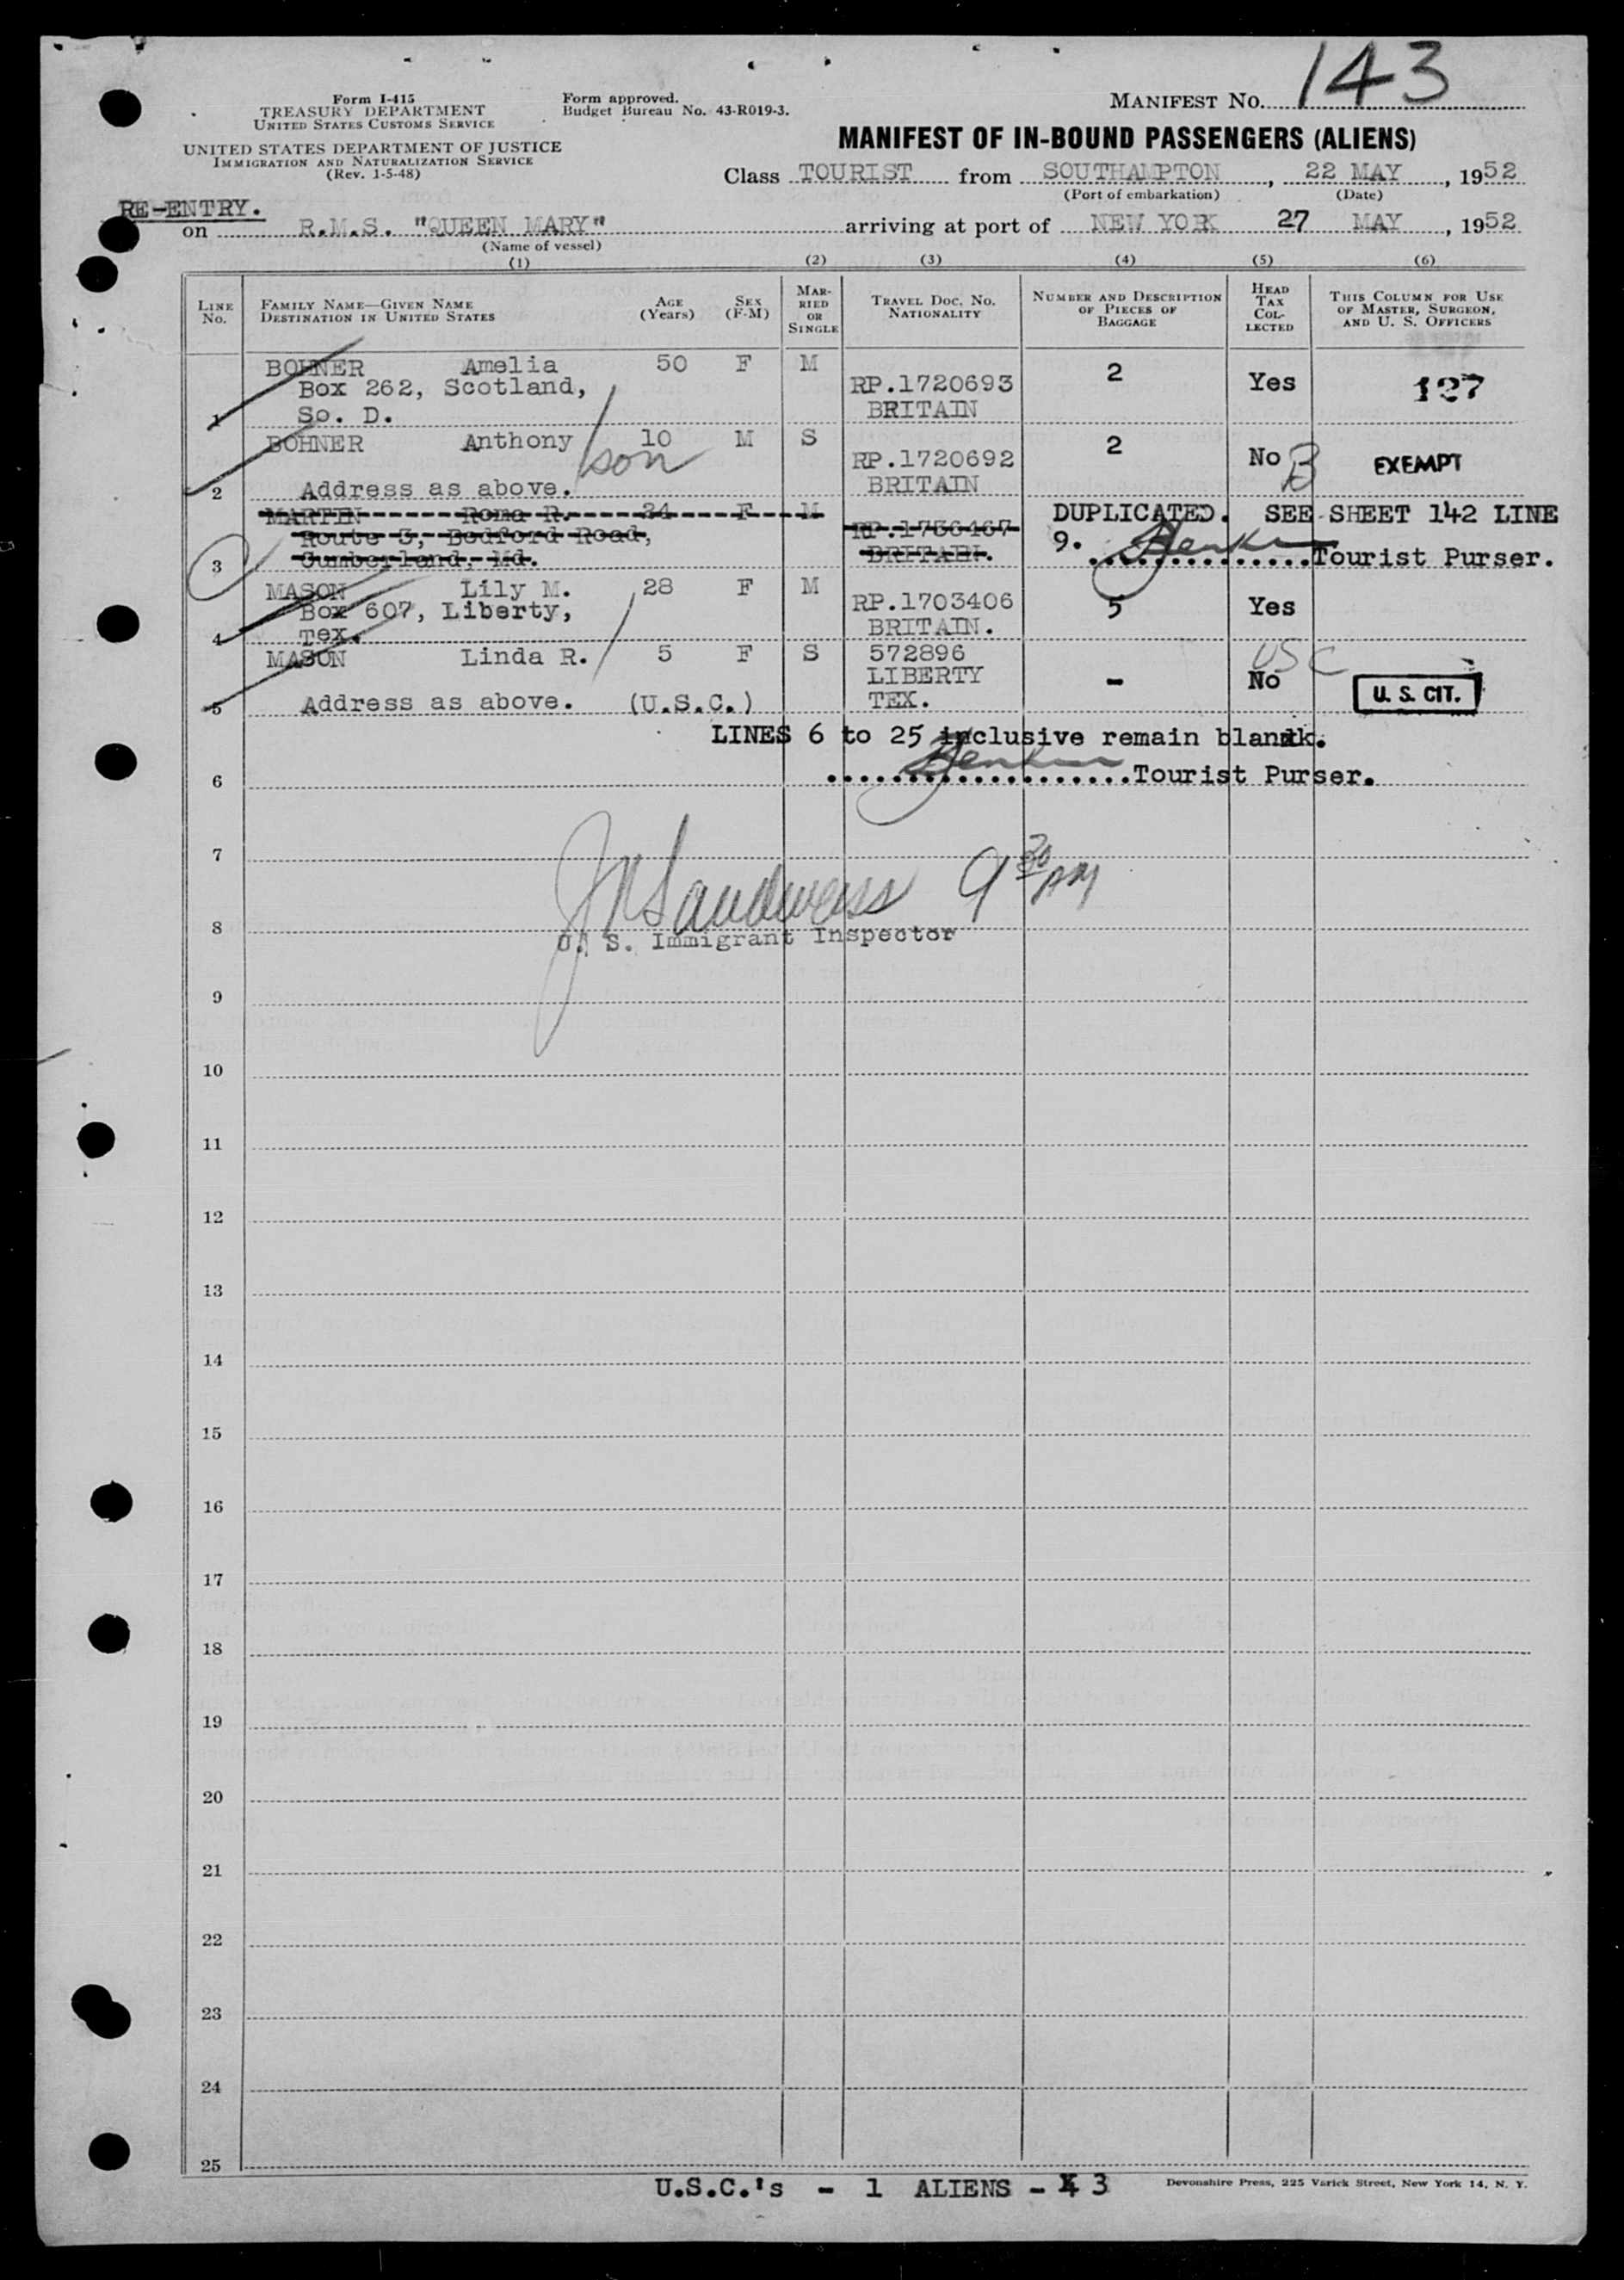 143
Form I-415
TREASURY DEPARTMENT
UNITED STATES CUSTOMS SERVICE
UNITED STATES DEPARTMENT OF JUSTICE
IMMIGRATION AND NATURALIZATION SERVICE
(Rev. 1-5-48)
Form approved.
Budget Bureau No. 43-R019-3.
MANIFEST NO.
MANIFEST OF IN-BOUND PASSENGERS (ALIENS)
Class TOURIST from SOUTHAMPTON, 22 MAY, 1952
(Port of embarkation) (Date)
RE-ENTRY.
on R.M.S. "QUEEN MARY" arriving at port of NEW YORK 27 MAY, 1952
(Name of vessel)
(1) (2) (3) (4) (5) (6)
LINE NO. FAMILY NAME—GIVEN NAME DESTINATION IN UNITED STATES AGE (Years) SEX (F-M) MARRIED OR SINGLE TRAVEL DOC. NO. NATIONALITY NUMBER AND DESCRIPTION OF PIECES OF BAGGAGE HEAD TAX COLLECTED THIS COLUMN FOR USE OF MASTER, SURGEON, AND U. S. OFFICERS
BOHNER Amelia 50 F M
Box 262, Scotland, RP.1720693 2 Yes 127
1 So. D. BRITAIN
BOHNER Anthony 10 M S
son RP.1720692 2 No B EXEMPT
2 Address as above. BRITAIN
MARTIN Rona R. 24 F M DUPLICATED. SEE SHEET 142 LINE
Route 3, Bedford Road, RP.1736467 9.
3 Cumberland, Md. BRITAIN. Tourist Purser.
MASON Lily M. 28 F M
Box 607, Liberty, RP.1703406 5 Yes
4 Tex. BRITAIN.
MASON Linda R. 5 F S 572896 USC
LIBERTY - No U. S. CIT.
5 Address as above. (U.S.C.) TEX.
LINES 6 to 25 inclusive remain blank.
6 Tourist Purser.
7
9 30 AM
8
U. S. Immigrant Inspector
9
10
11
12
13
14
15
16
17
18
19
20
21
22
23
24
25
U.S.C.'s - 1 ALIENS - 4 3
Devonshire Press, 225 Varick Street, New York 14, N. Y.